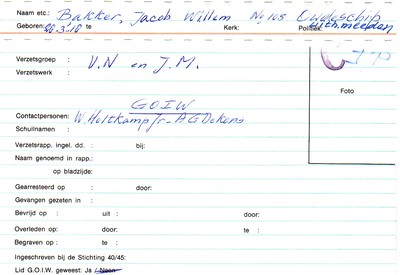 Naam etc.: Bakker, Jacob Willem No 105 Oudeschip
Geboren: 20.3.'18 te: Kerk: Politiek: Uithmeeden
Verzetsgroep : V.N en J.M.
Verzetswerk :
Foto
G O I W
Contactpersonen: W. Holtkamp Jr - A G Dekens
Schuilnamen :
Verzetsrapp. ingel. dd. : bij:
Naam genoemd in rapp.:
op bladzijde:
Gearresteerd op : door:
Gevangen gezeten in :
Bevrijd op : uit : door:
Overleden op: door: te :
Begraven op : te :
Ingeschreven bij de Stichting 40/45:
Lid G.O.I.W. geweest: Ja / Neen